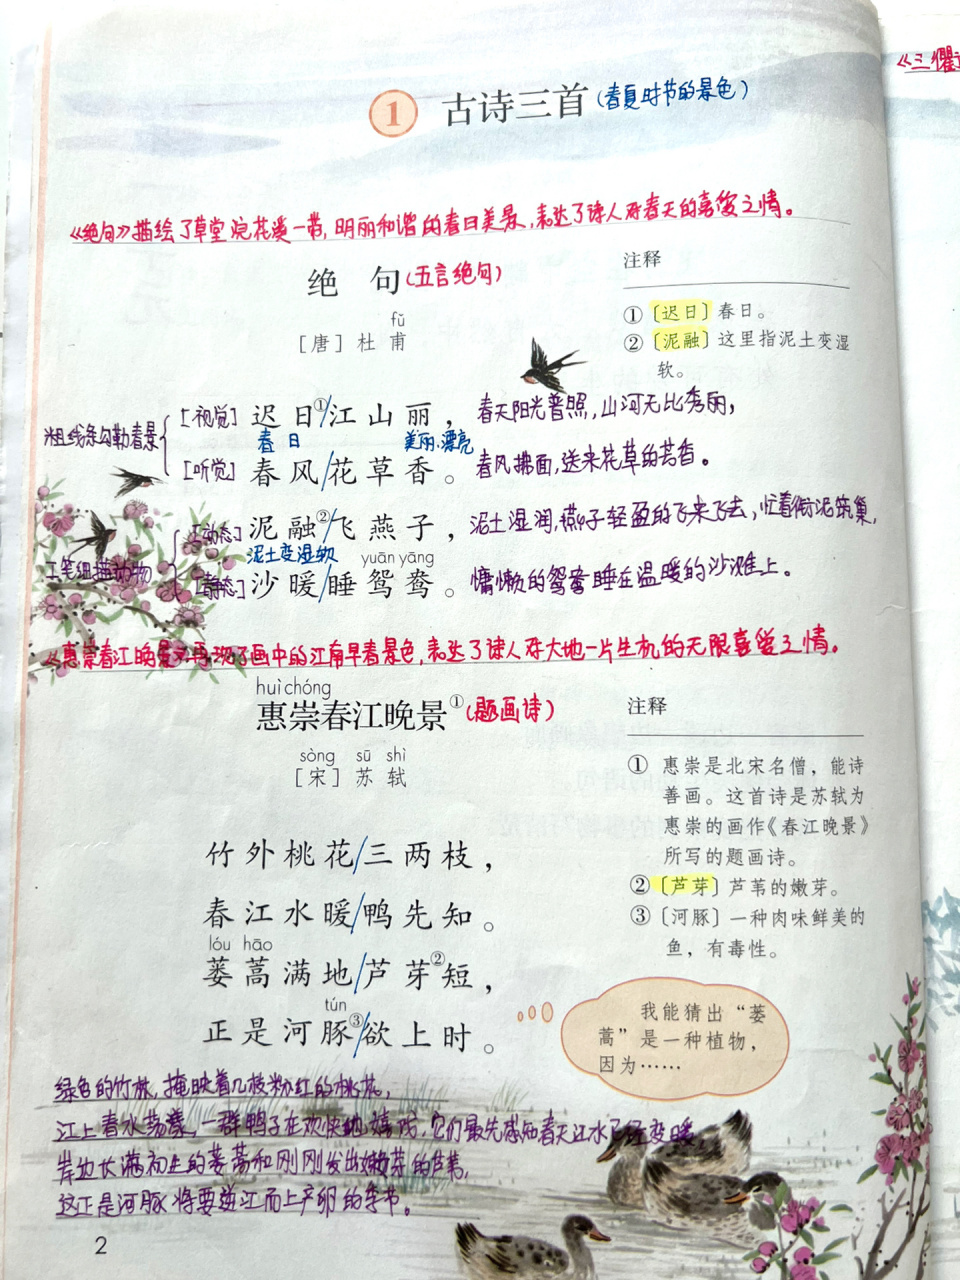 《三懼
1 古诗三首(春夏时节的景色)
《绝句》描绘了草堂浣花溪一带,明丽和谐的春日美景,表达了诗人对春天的喜爱之情。
绝 句(五言绝句)
fǔ
［唐］杜 甫
注释
①〔迟日〕春日。
②〔泥融〕这里指泥土变湿
软。
粗线条勾勒春景
[视觉] 迟日①/江山丽， 春天阳光普照,山河无比秀丽,
春 日 美丽、漂亮
[听觉] 春风/花草香。 春风拂面,送来花草的芳香。
工笔细描动物
[动态] 泥融②/飞燕子， 泥土湿润,燕子轻盈的飞来飞去,忙着衔泥筑巢,
泥土变湿软 yuān yāng
[静态] 沙暖/睡鸳鸯。 慵懒的鸳鸯睡在温暖的沙滩上。
《惠崇春江晚景》再现了画中的江南早春景色,表达了诗人对大地一片生机的无限喜爱之情。
huì chóng
惠崇春江晚景①(题画诗)
sòng sū shì
［宋］苏 轼
竹外桃花/三两枝，
春江水暖/鸭先知。
lóu hāo
蒌蒿满地/芦芽②短，
tún
正是河豚③/欲上时。
注释
① 惠崇是北宋名僧，能诗
善画。这首诗是苏轼为
惠崇的画作《春江晚景》
所写的题画诗。
②〔芦芽〕芦苇的嫩芽。
③〔河豚〕一种肉味鲜美的
鱼，有毒性。
我能猜出“蒌
蒿”是一种植物，
因为……
绿色的竹林,掩映着几枝粉红的桃花,
江上春水荡漾,一群鸭子在欢快地嬉戏,它们最先感知春天江水已经变暖,
岸边长满初生的蒌蒿和刚刚发出嫩芽的芦苇,
这正是河豚将要逆江而上产卵的季节。
2